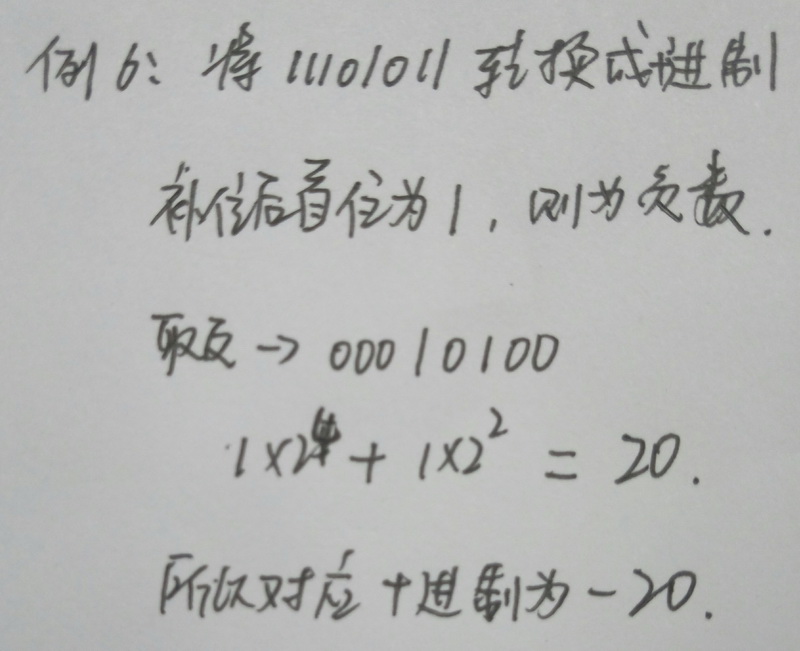 例6: 将11101011转换成十进制
补位后首位为1, 则为负数.
取反→00010100
1×2⁴+1×2²=20.
所以对应十进制为-20.